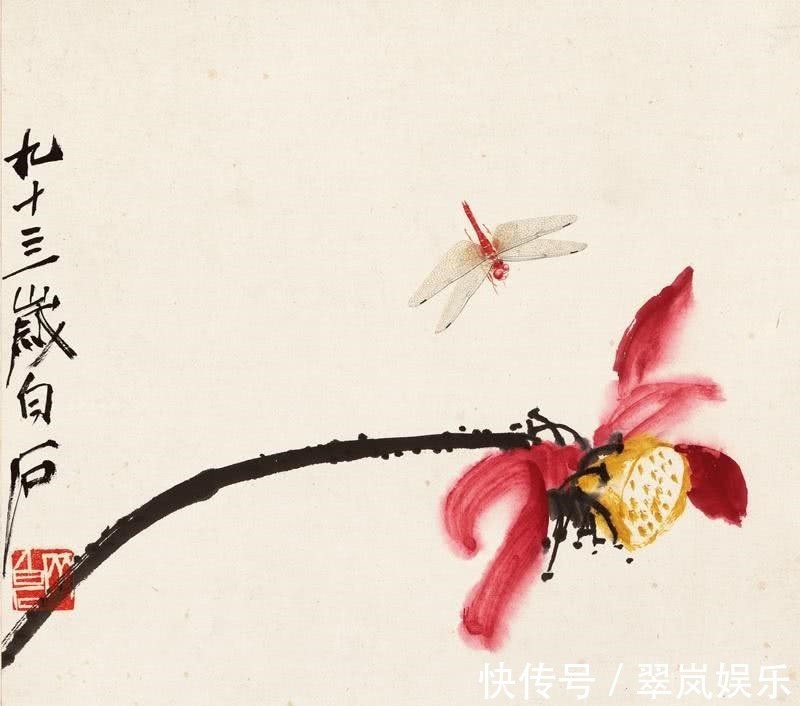 九十三歲白石
白石
快传号 / 翠岚娱乐